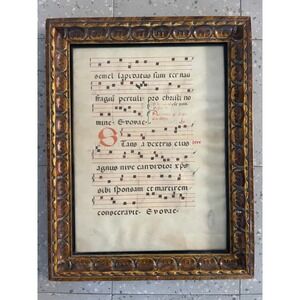 semel lapidatus sum ter nau
fragiu pertuli pro christi no
mine Euouae
Stans a dextris eius
agnus nive candidior xps
sibi sponsam et martirem
consecravit Euouae